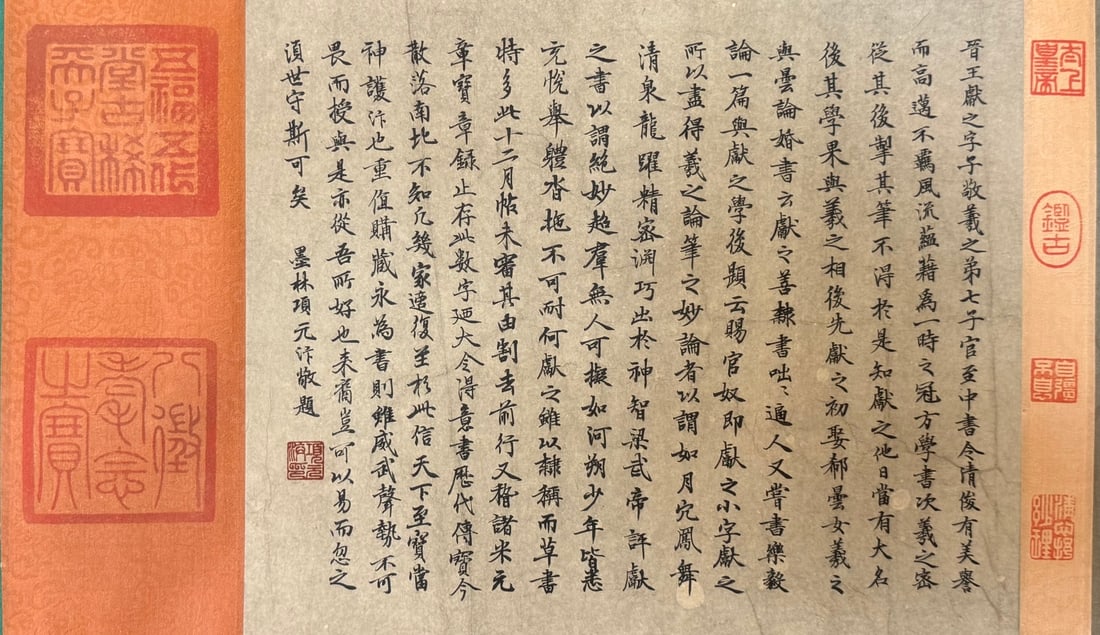 太上皇帝
鑑古
自彊不息
晉王獻之字子敬羲之第七子官至中書令清俊有美譽
而高邁不羈風流蘊藉為一時之冠方學書次羲之密
從其後掣其筆不得於是知獻之他日當有大名
後其學果與羲之相後先獻之初娶郗曇女羲之
與曇論婚書云獻之善隸書咄〻逼人又嘗書樂毅
論一篇與獻之學後題云賜官奴即獻之小字獻之
所以盡得羲之論筆之妙論者以謂如月穴鳳舞
清泉龍躍精密淵巧出於神智梁武帝評獻
之書以謂絕妙超羣無人可擬如河朔少年皆悉
充悅舉體沓拖不可耐何獻之雖以隸稱而草書
特多此十二月帖未審其由割去前行又稽諸米元
章寶章錄止存此數字迺大令得意書歷代傳寶今
散落南北不知凡幾家遠復至於此信天下至寶當
神護汴也重值購藏永為書則雖威武聲勢不可
畏而授與是亦從吾所好也來裔豈可以易而忽之
湏世守斯可矣 墨林項元汴敬題
項元汴印
五福五代堂古稀天子寶
八徵耄念之寶